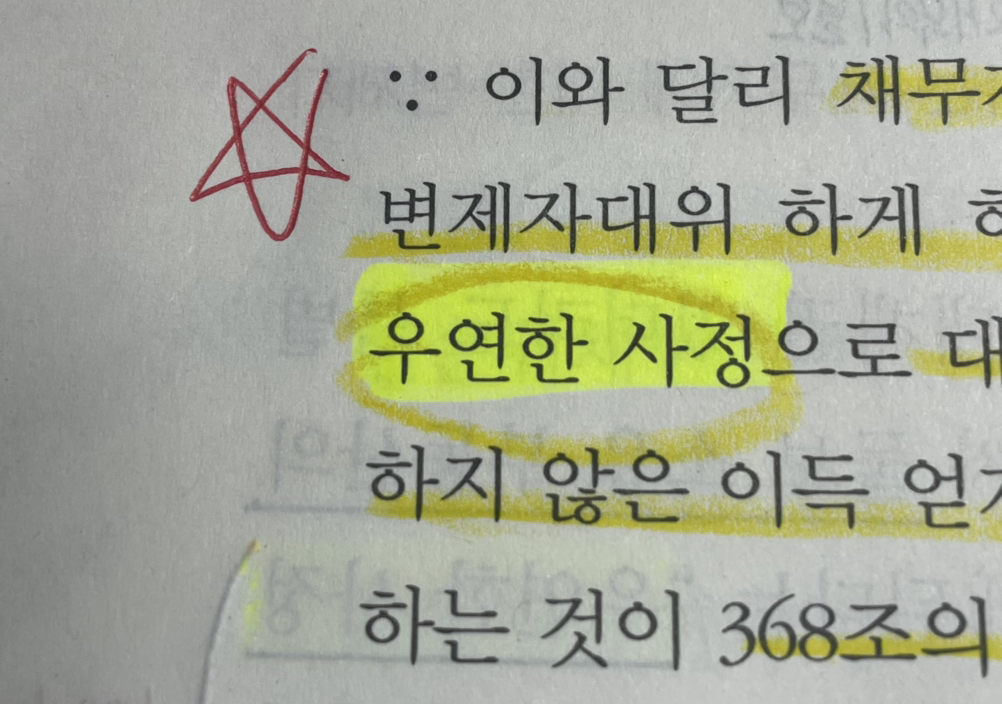 ∵ 이와 달리 채무
변제자대위 하게
우연한 사정으로 대
하지 않은 이득 얻
하는 것이 368조의